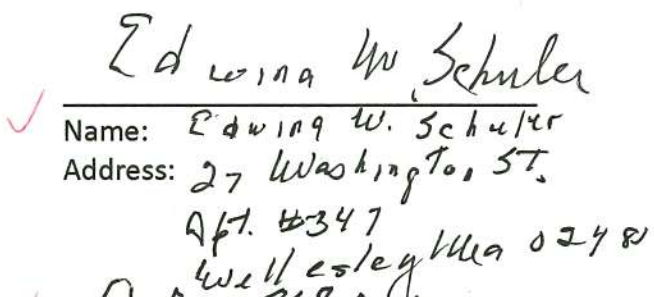 Edwina W. Schuler
Name: Edwina W. Schuler
Address: 27 Washington ST.
Apt. #347
Wellesley Ma 02481